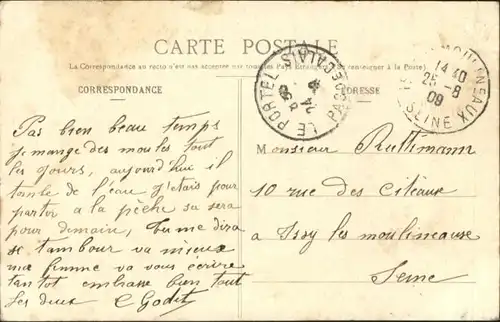 CARTE POSTALE
La Correspondance au recto n'est pas acceptée par tous les Pays Etrangers (Se renseigner à la Poste)
CORRESPONDANCE
ADRESSE
LE PORTEL PAS DE CALAIS
MOULINEAUX
SEINE
14 40
25 - 8
09
Pas bien beau temps
je mange des moules tout
les jours, aujourd'hui il
tombe de l'eau j'etais pour
partir a la pèche sa sera
pour demain, tu me dira
se tambour va mieux
ma femme va vous écrire
tantot embrasse bien tout
les deux
Monsieur Ruttimann
10 rue des Citeaux
a Issy les moulineause
Seine